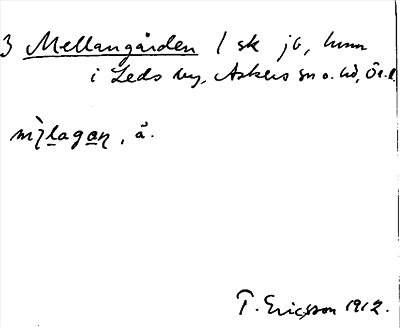 3 Mellangården / sk jo, hmn
i Leds by, Askers sn o. hd, Ör. l.
m`lagan, å.
T. Ericsson 1912.